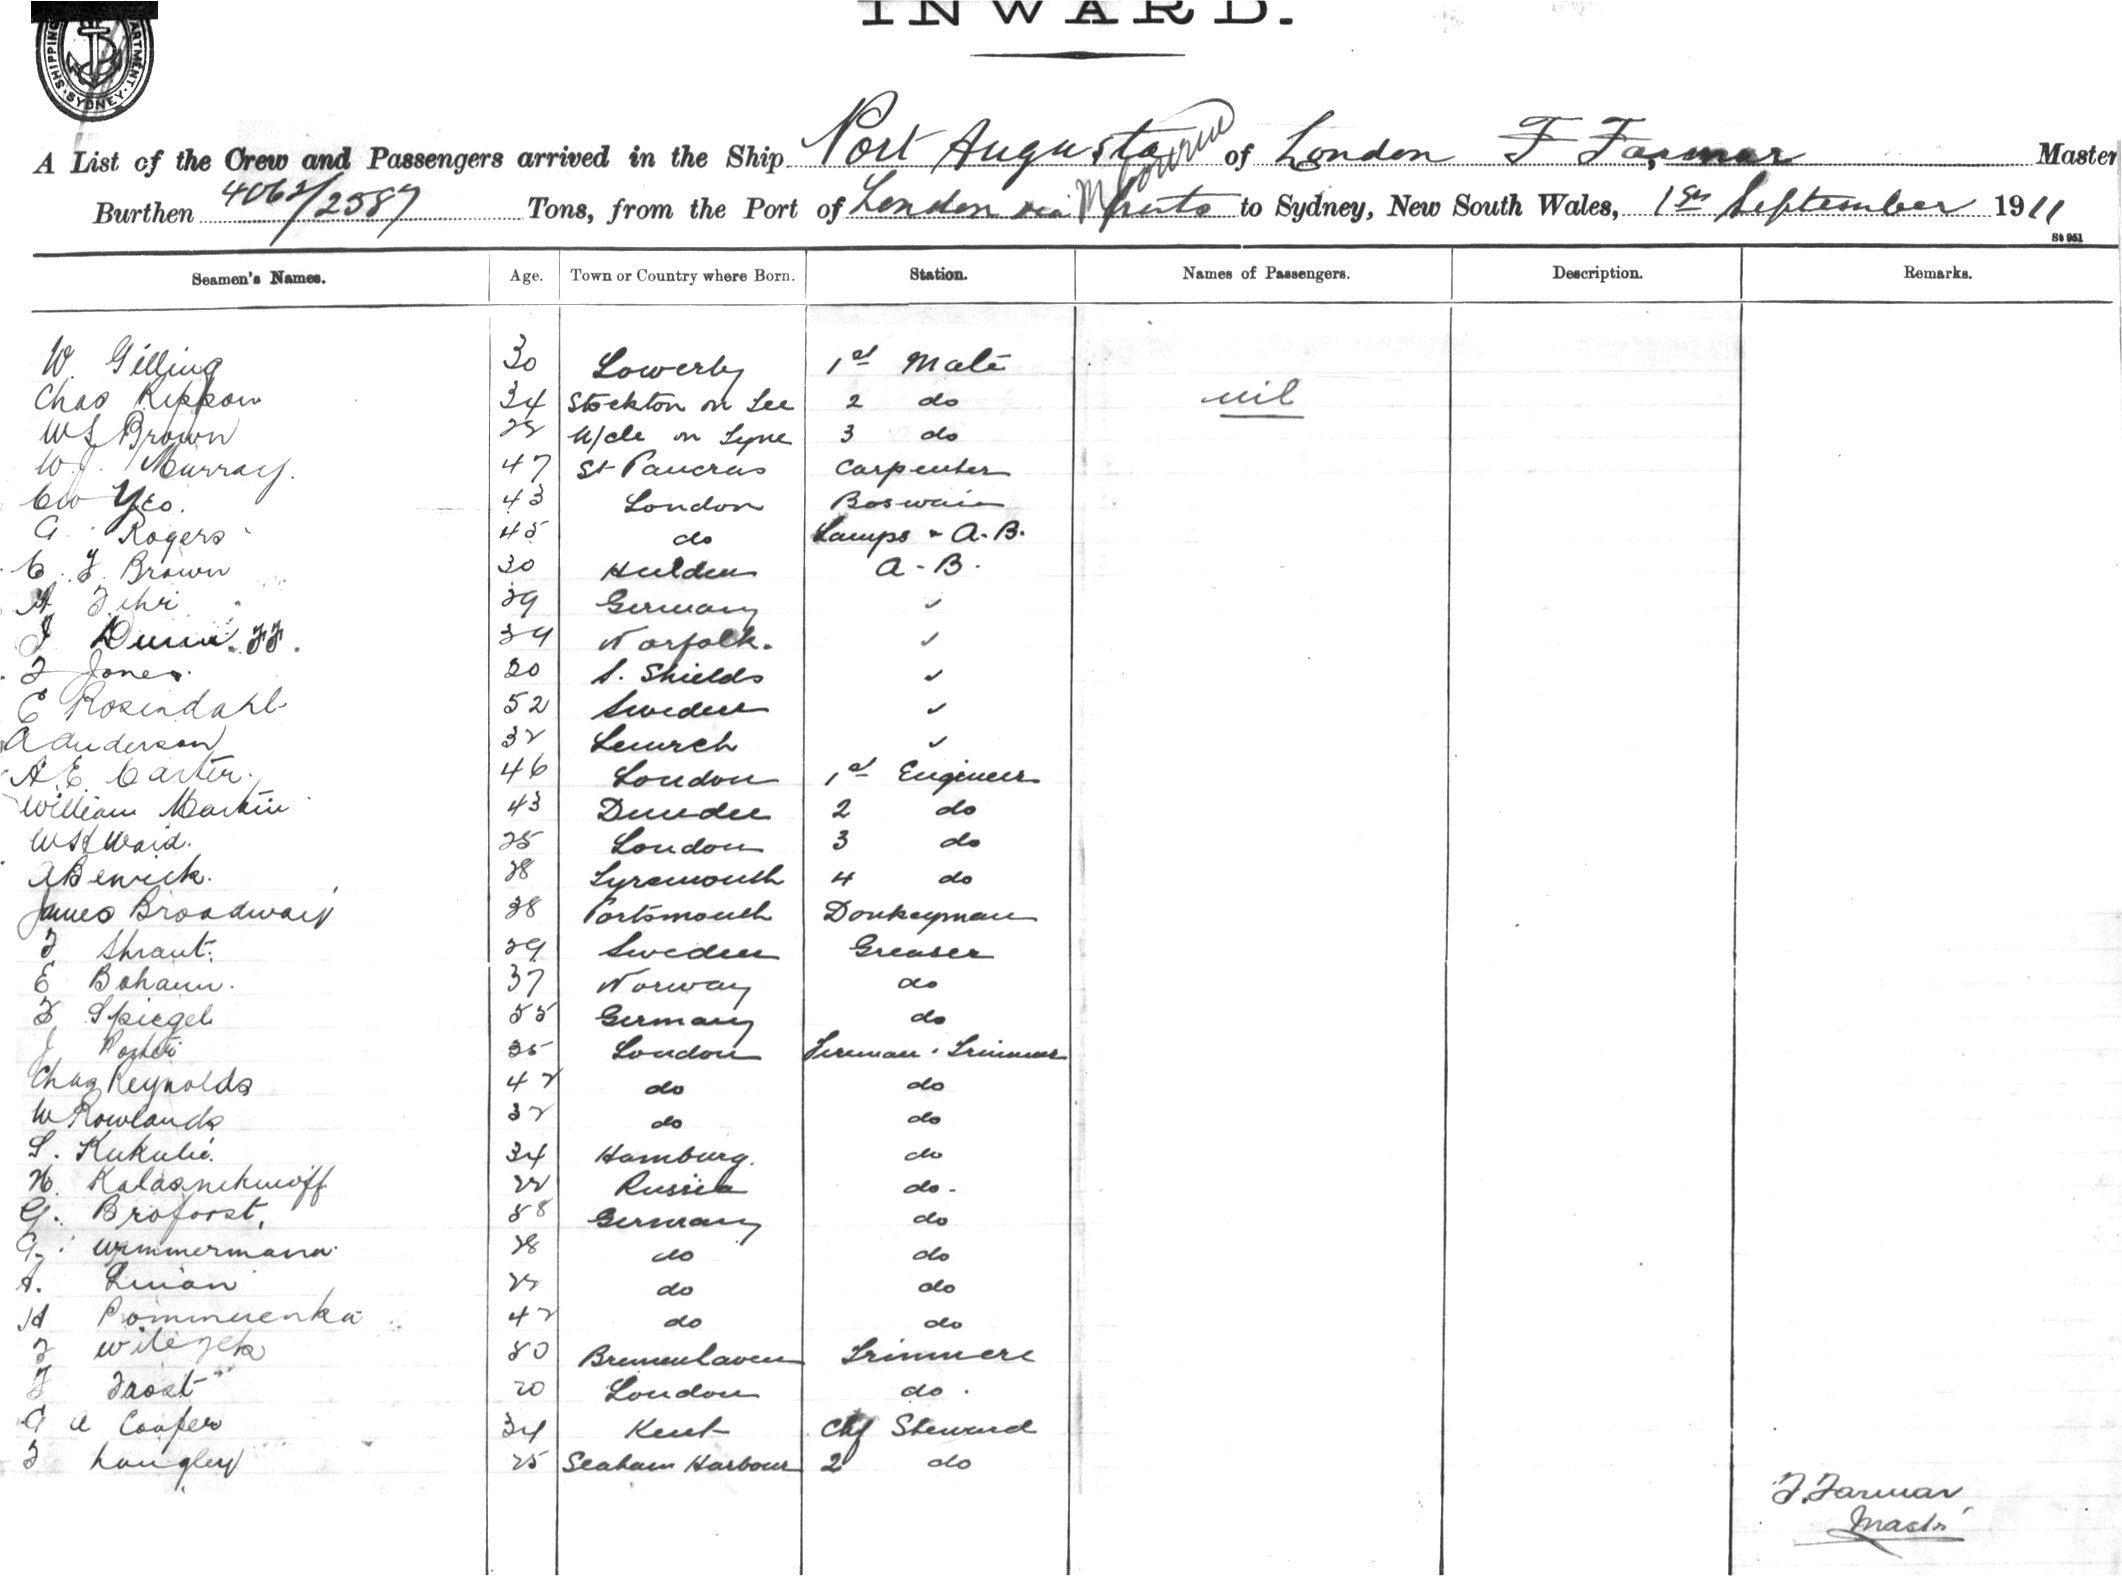 INWARD.
SHIPPING DEPARTMENT SYDNEY
A List of the Crew and Passengers arrived in the Ship Port Augusta of London F Farmar Master
Burthen 4062/2587 Tons, from the Port of London via Ports to Sydney, New South Wales, 1st September 1911
St 951
Seamen's Names. Age. Town or Country where Born. Station. Names of Passengers. Description. Remarks.
W. Gilling 30 Lowerby 1st Mate
Chas Rippon 34 Stockton on Tee 2 do nil
W Brown N/cle on Tyne 3 do
W.J. Murray. 47 St Pancras Carpenter
Yeo. 43 London Boswain
Rogers 45 do Lamps & A.B.
C. F. Brown 30 A.B.
Germany ✓
J Norfolk. ✓
Jones. S. Shields ✓
E Rosendahl 52 Sweden ✓
A Anderson 32 ✓
A.E. Carter. 46 London 1st Engineer
William Martin 43 Dundee 2 do
25 London 3 do
A Berwick. 28 Tynemouth 4 do
James Broadway 38 Portsmouth Donkeyman
Shraut. 29 Sweden Greaser
E Bohann. 37 Norway do
Spiegel Germany do
J Porter London Fireman & Trimmer
Chas Reynolds 42 do do
W Rowlands 32 do do
S. Kukulié. 34 Hamburg. do
Russia do.
G. Brofoost. Germany do
28 do do
do do
H 42 do do
Bremenhaven Trimmers
F Frost 20 London do.
Cooper 34 Kent Chf Steward
Langley 25 Seaham Harbour 2 do
F. Farmar
Master